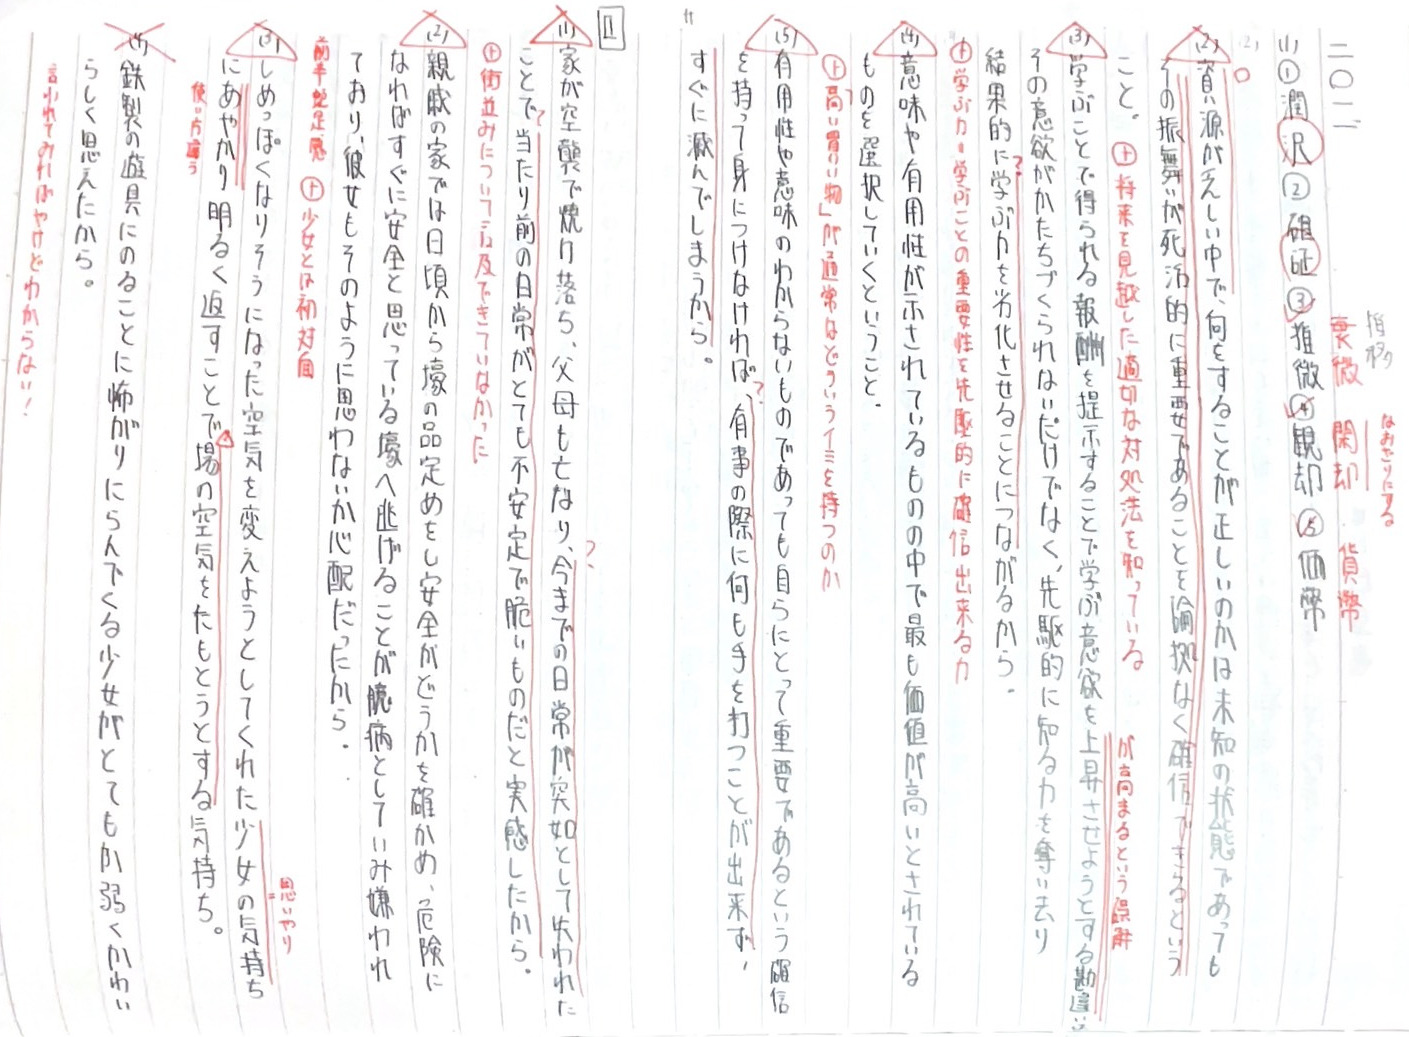 二〇一一
推移
衰微 閑却 貨幣
なおざりにする
(1)①潤沢②確証③推微④観却⑤価幣
(2)資源が乏しい中で、何をすることが正しいのかは未知の状態であっても
その振舞いが死活的に重要であることを論拠なく確信できるという
こと。 ⊕将来を見越した適切な対処法を知っている
が高まるという誤解
(3)学ぶことで得られる報酬を提示することで学ぶ意欲を上昇させようとする勘違い
その意欲がかたちづくられないだけでなく、先駆的に知る力を奪い去り
結果的に学ぶ力を劣化させることにつながるから。
⊕学ぶ力=学ぶことの重要性を先駆的に確信出来る力
(4)意味や有用性が示されているものの中で最も価値が高いとされている
ものを選択していくということ。
⊕「高い買い物」が通常はどういうイミを持つのか
(5)有用性や意味のわからないものであっても自らにとって重要であるという確信
を持って身につけなければ、有事の際に何も手を打つことが出来ず、
すぐに滅んでしまうから。
II
(1)家が空襲で焼け落ち、父母も亡なり、今までの日常が突如として失われた
ことで当たり前の日常がとても不安定で脆いものだと実感したから。
⊕街並みについて言及できていなかった
(2)親戚の家では日頃から壕の品定めをし安全かどうかを確かめ、危険に
なればすぐに安全と思っている壕へ逃げることが臆病としていみ嫌われ
ており、彼女もそのように思わないか心配だったから。
前半蛇足感 ⊕少女とは初対面
(3)しめっぽくなりそうになった空気を変えようとしてくれた少女の気持ち
思いやり
にあやかり明るく返すことで場の空気をたもとうとする気持ち。
使い方違う
(4)鉄製の遊具にのることに怖がりにらんでくる少女がとてもか弱くかわい
らしく思えたから。
言われてみればやけどわからない!